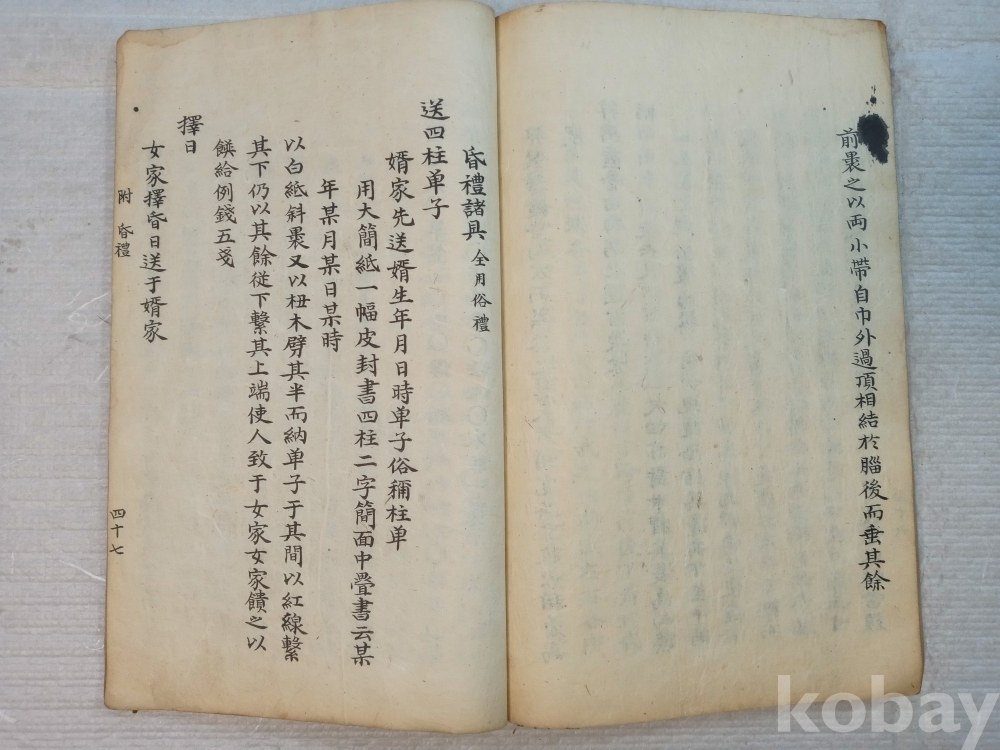 前裹之以両小帶自巾外過頂相結於腦後而垂其餘
昏禮諸具 全用俗禮
送四柱单子
婿家先送婿生年月日時单子俗稱柱单
用大簡紙一幅皮封書四柱二字簡面中疊書云某
年某月某日某時
以白紙斜裹又以杻木劈其半而納单子于其間以紅線繫
其下仍以其餘從下繫其上端使人致于女家女家饋之以
饌給例錢五戔
擇日
女家擇昏日送于婿家
附 昏禮
四十七
kobay